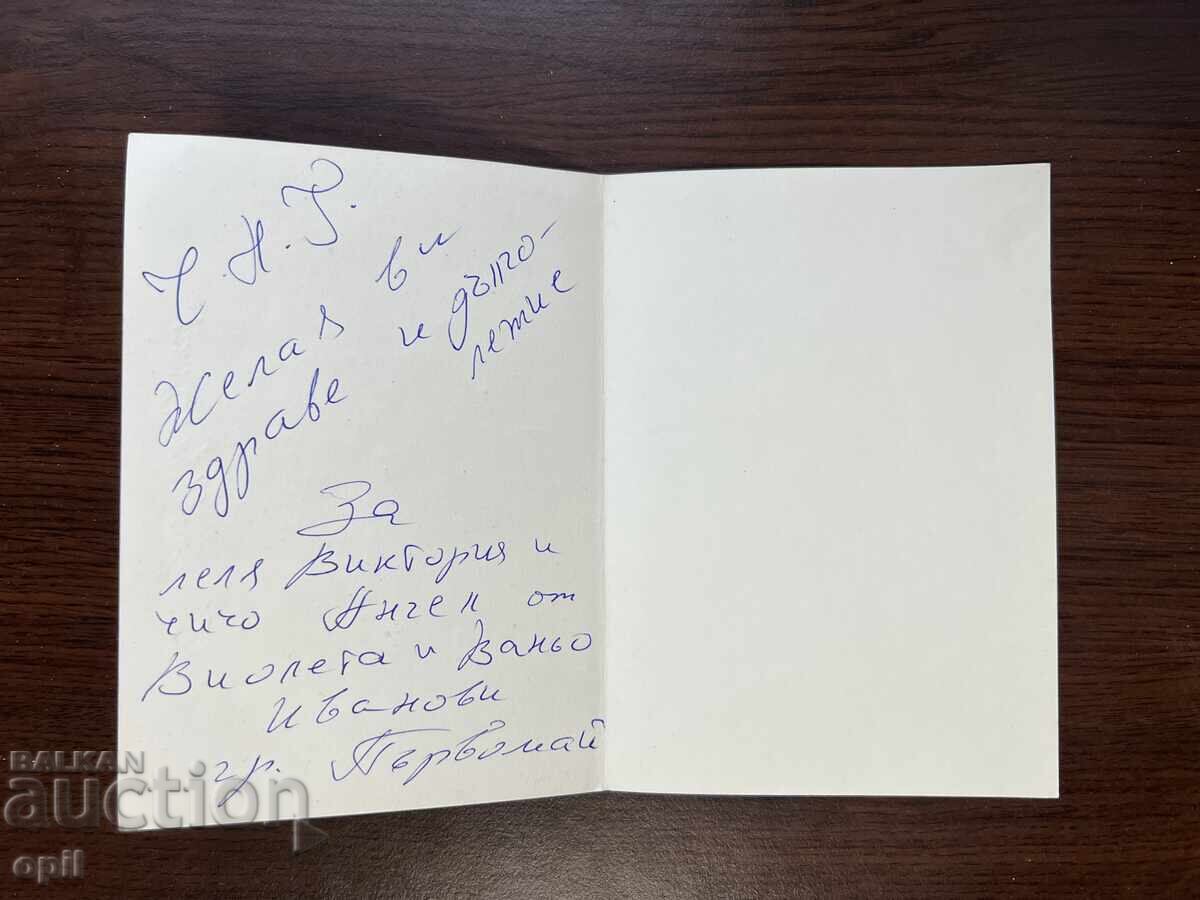 Ч.Н.Г.
Желая ви
здраве и дълго-
летие
За
леля Виктория и
чичо Ангел от
Виолета и Ваньо
Иванови
гр. Първомай
BALKAN
auction
opil